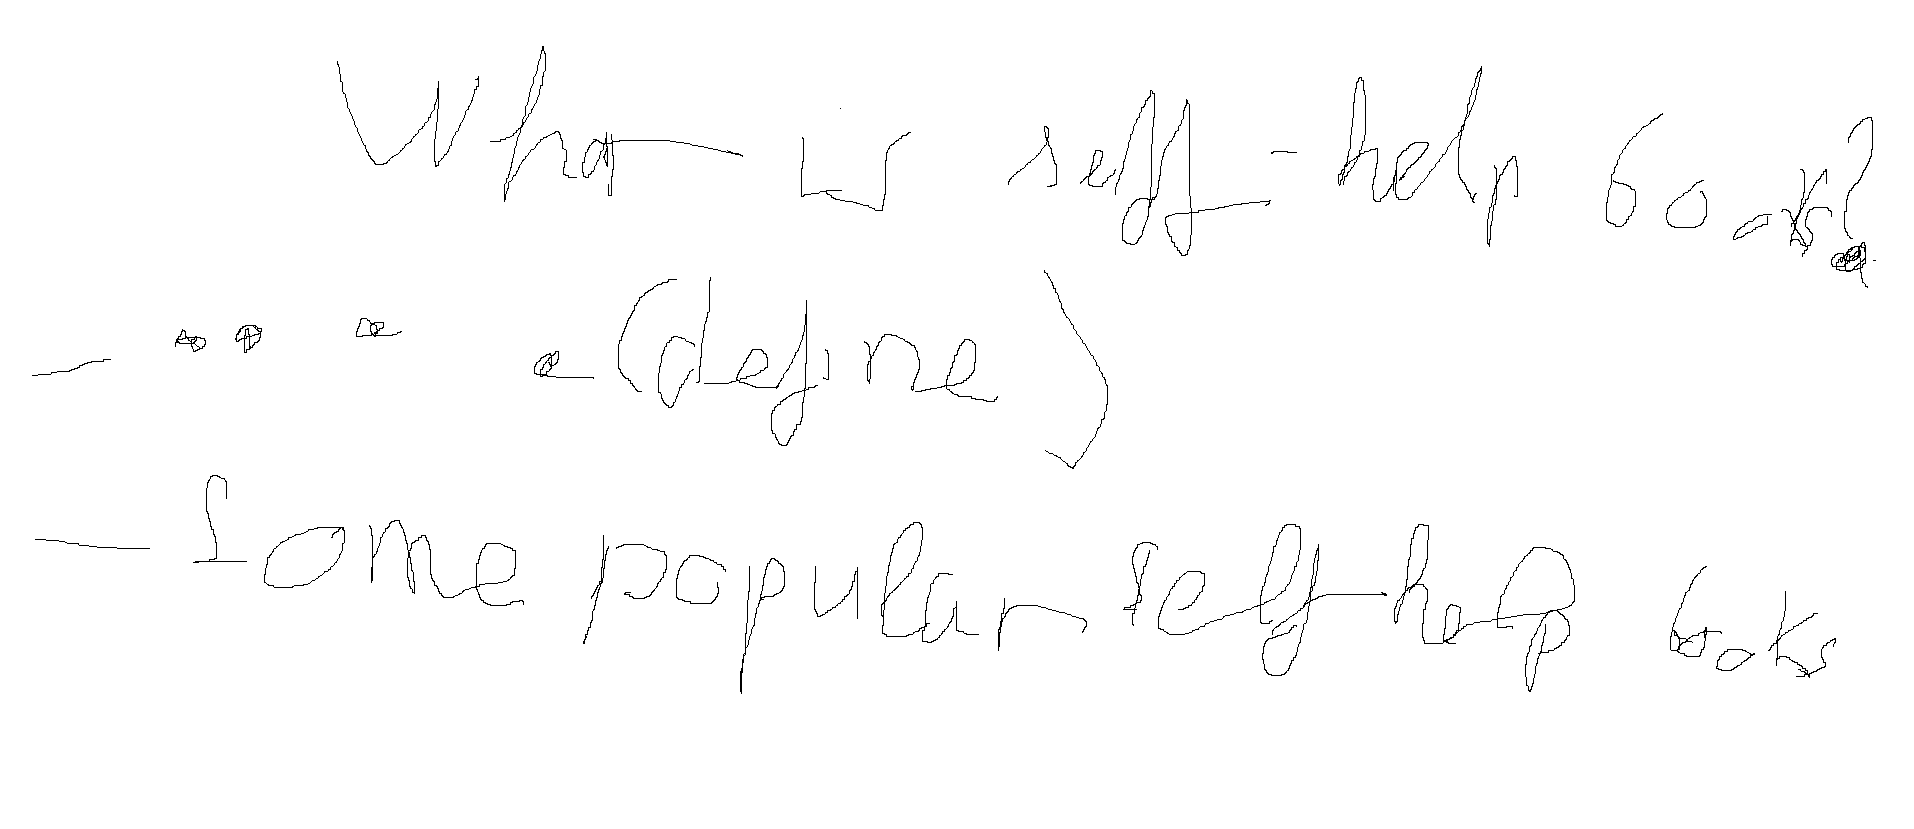 What is self-help books?
- .. . . (define)
- Some popular self help books